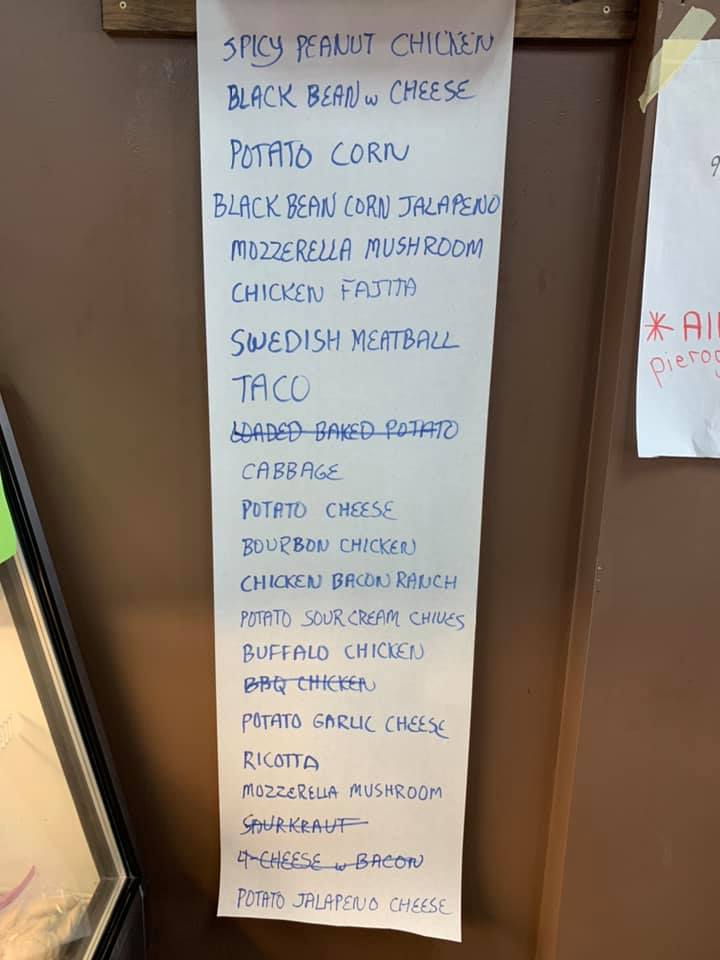 SPICY PEANUT CHICKEN
BLACK BEAN w CHEESE
POTATO CORN
BLACK BEAN CORN JALAPENO
MOZZERELLA MUSHROOM
CHICKEN FAJITA
SWEDISH MEATBALL
TACO
LOADED BAKED POTATO
CABBAGE
POTATO CHEESE
BOURBON CHICKEN
CHICKEN BACON RANCH
POTATO SOUR CREAM CHIVES
BUFFALO CHICKEN
BBQ CHICKEN
POTATO GARLIC CHEESE
RICOTTA
MOZZERELLA MUSHROOM
SAURKRAUT
4-CHEESE w BACON
POTATO JALAPENO CHEESE
9
* All
pierog